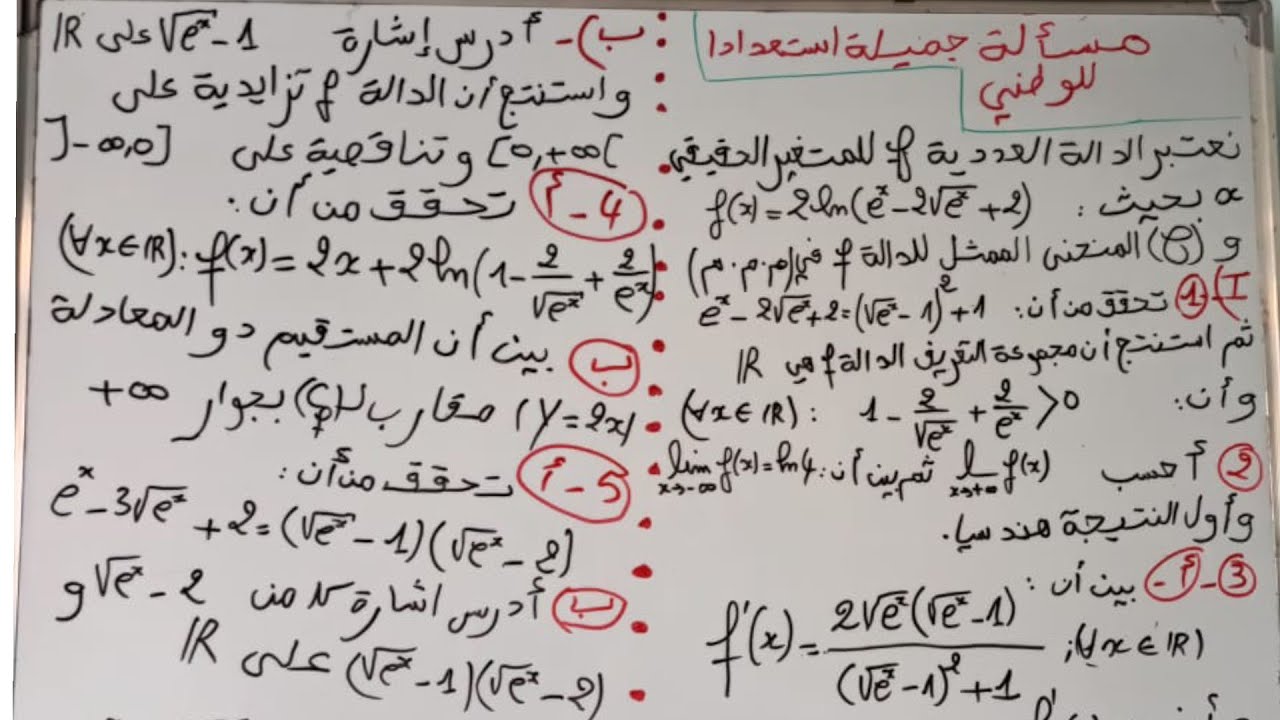 مسألة جميلة استعدادا
للوطني
نعتبر الدالة العددية f للمتغير الحقيقي
x بحيث : f(x)=2ln(e^x-2√e^x+2)
و (C) المنحنى الممثل للدالة f في (م.م.م)
I) 1) تحقق من أن: e^x-2√e^x+2=(√e^x-1)²+1
ثم استنتج أن مجموعة التعريف الدالة f هي IR
وأن: (∀x∈IR) : 1-2/√e^x+2/e^x>0
2) أ حسب lim f(x) x→+∞ ثم بين أن: lim f(x)=ln4 x→-∞
وأول النتيجة هندسيا.
3-أ- بين أن :
f'(x)=2√e^x(√e^x-1)/((√e^x-1)²+1) ;(∀x∈IR)
ب)- أدرس إشارة √e^x-1 على IR
واستنتج أن الدالة f تزايدية على
[0,+∞[ وتناقصية على ]-∞,0]
4-أ تحقق من أن :
(∀x∈IR): f(x)=2x+2ln(1-2/√e^x+2/e^x)
ب بين أن المستقيم ذو المعادلة
(y=2x) مقارب لـ(Cf) بجوار +∞
5-أ تحقق من أن :
e^x-3√e^x+2=(√e^x-1)(√e^x-2)
ب أدرس اشارة كلا من √e^x-2 و
(√e^x-1)(√e^x-2) على IR